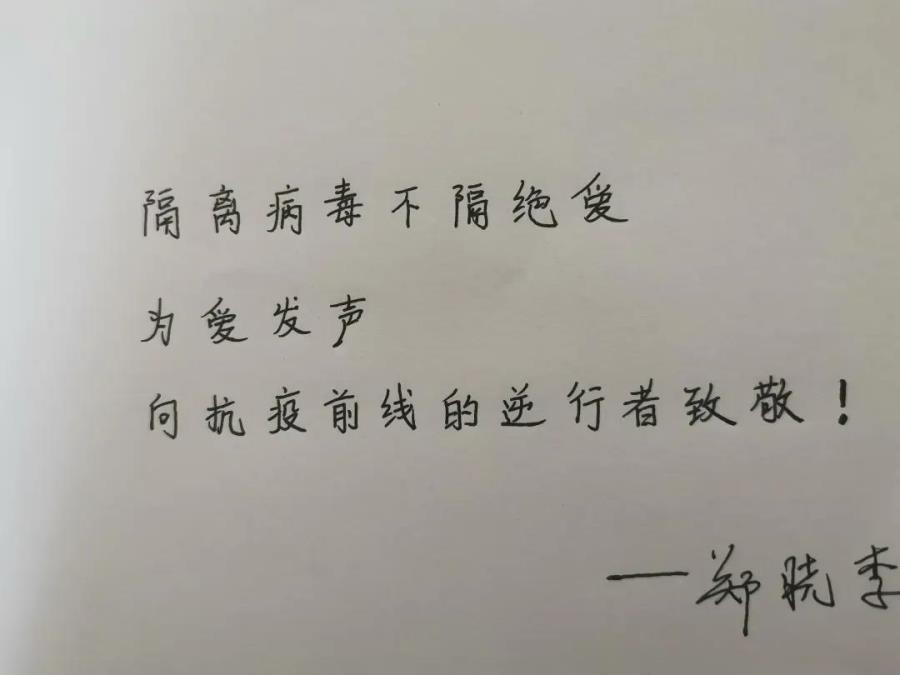 隔离病毒不隔绝爱
为爱发声
向抗疫前线的逆行者致敬！
—郑晓李